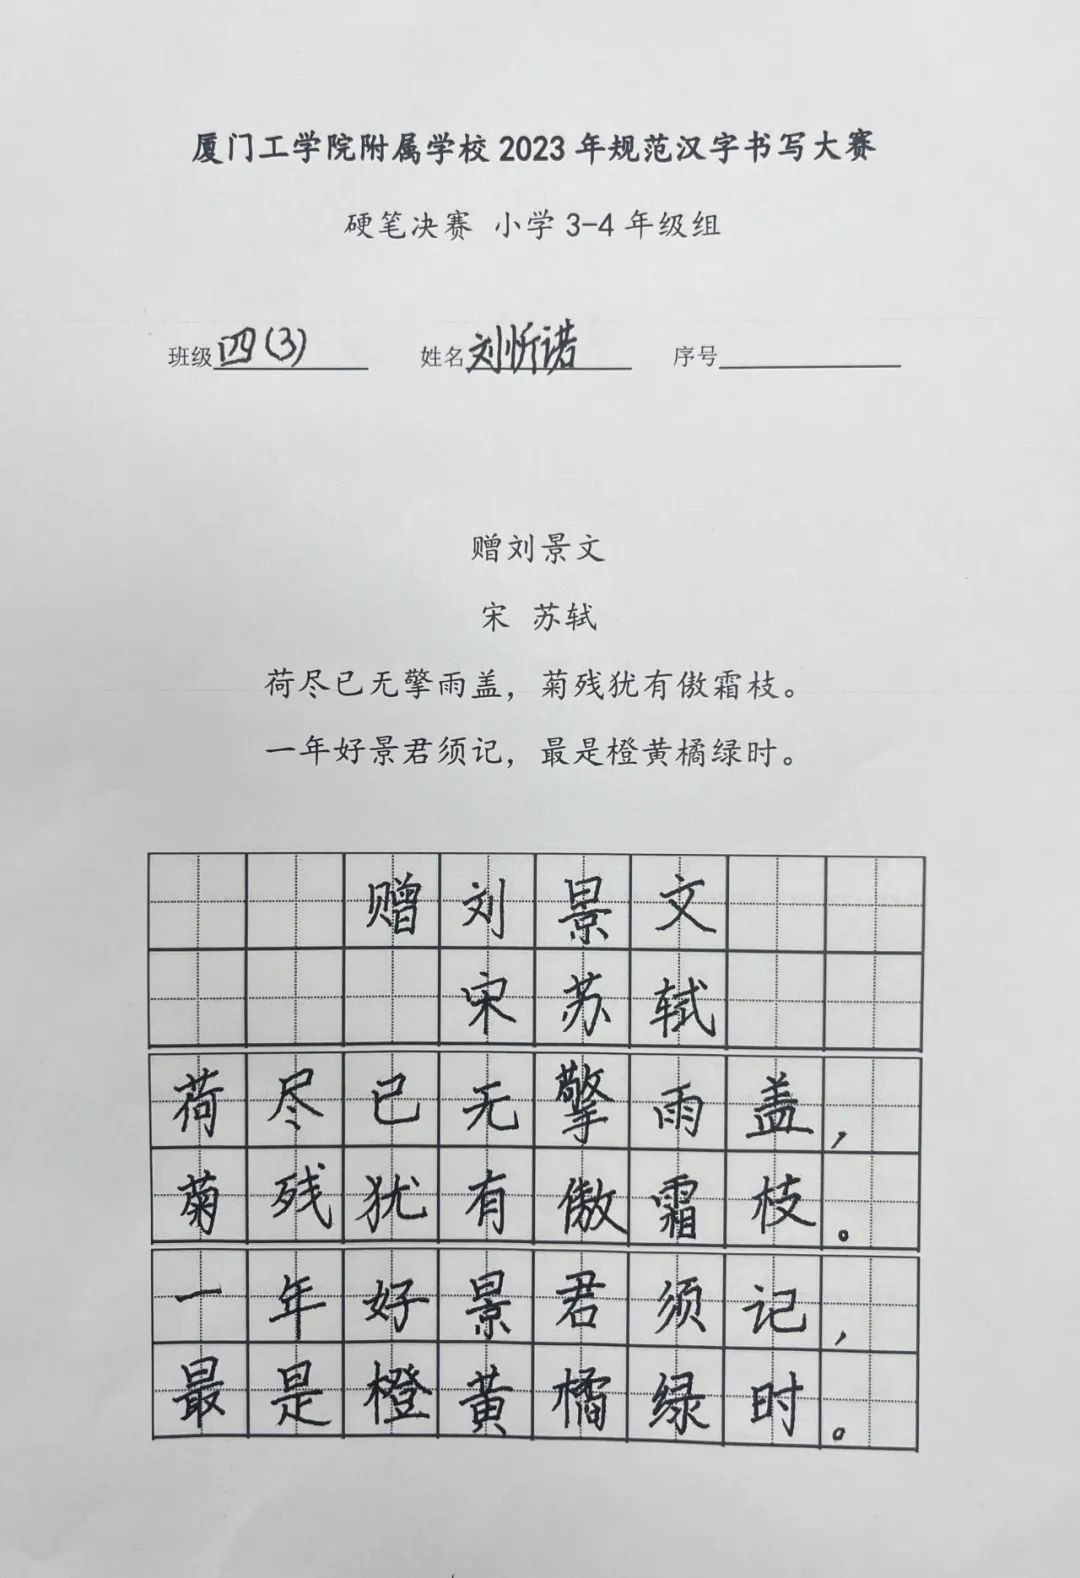 厦门工学院附属学校2023年规范汉字书写大赛
硬笔决赛 小学3-4年级组
班级四(3) 姓名刘忻诺 序号
赠刘景文
宋 苏轼
荷尽已无擎雨盖，菊残犹有傲霜枝。
一年好景君须记，最是橙黄橘绿时。
赠刘景文
宋苏轼
荷尽已无擎雨盖，
菊残犹有傲霜枝。
一年好景君须记，
最是橙黄橘绿时。